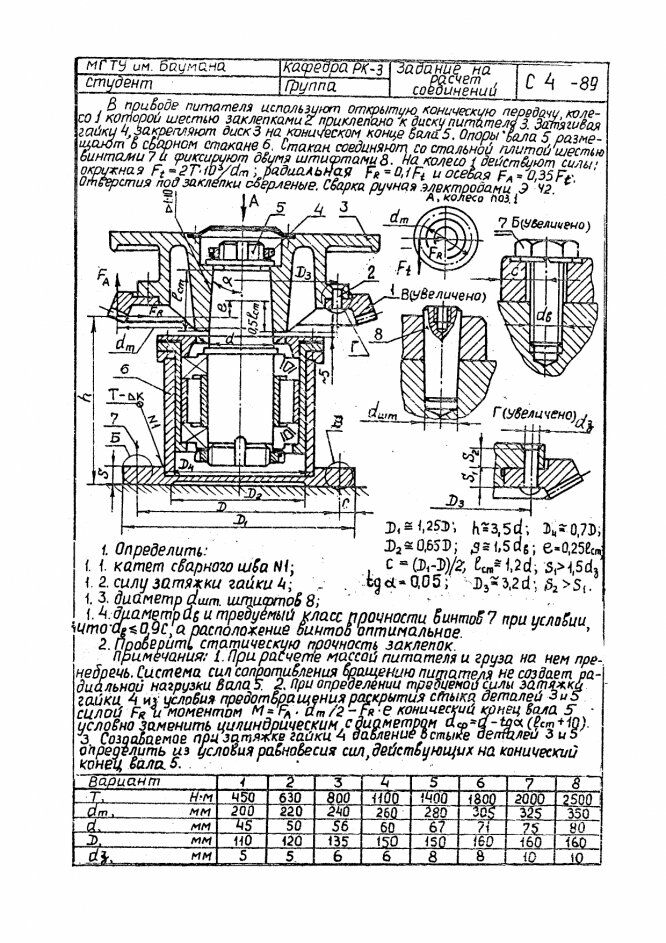 МГТУ им. Баумана
Кафедра РК-3
Задание на расчет соединений
С 4 -89
студент
Группа
В приводе питателя используют открытую коническую передачу, коле-
со 1 которой шестью заклепками 2 приклепано к диску питателя 3. Затягивая
гайку 4, закрепляют диск 3 на коническом конце вала 5. Опоры вала 5 разме-
щают в сварном стакане 6. Стакан соединяют со стальной плитой шестью
винтами 7 и фиксируют двумя штифтами 8. На колесо 1 действуют силы:
окружная Ft = 2T·10³/dm; радиальная FR = 0,1Ft и осевая FA = 0,35Ft.
Отверстия под заклепки сверленые. Сварка ручная электродами Э 42.
А, колесо поз.1
А
5
4
3
dm
FR
Ft
7
Б (увеличено)
С
dв
FA
lст
α
D3
2
e
0,5lст
FR
1
В (увеличено)
8
dшт
dm
d
Г
h
6
Т-△К
N1
7
Б
В
D4
D2
D
D1
С
Г (увеличено)
dз
S2
S1
D3
D1≅1,25D; h≅3,5d; D4≅0,7D;
D2≅0,65D; g≅1,5dв; e=0,25lст
C = (D1-D)/2; lст≅1,2d; S1>1,5dз
tgα=0,05; D3≅3,2d; S2>S1.
1. Определить:
1. 1. катет сварного шва N1;
1. 2. силу затяжки гайки 4;
1. 3. диаметр dшт. штифтов 8;
1. 4. диаметр dв и требуемый класс прочности винтов 7 при условии,
что dв≤0,9С, а расположение винтов оптимальное.
2. Проверить статическую прочность заклепок.
Примечания: 1. При расчете массой питателя и груза на нем пре-
небречь. Система сил сопротивления вращению питателя не создает ра-
диальной нагрузки вала 5. 2. При определении требуемой силы затяжки
гайки 4 из условия предотвращения раскрытия стыка деталей 3 и 5
силой FR и моментом M = FA · dm/2 - FR · e конический конец вала 5
условно заменить цилиндрическим с диаметром dср=d-tgα(lст+10).
3. Создаваемое при затяжке гайки 4 давление в стыке деталей 3 и 5
определить из условия равновесия сил, действующих на конический
конец вала 5.
Вариант 1 2 3 4 5 6 7 8
T, Н·м 450 630 800 1100 1400 1800 2000 2500
dm, мм 200 220 240 260 280 305 325 350
d, мм 45 50 56 60 67 71 75 80
D, мм 110 120 135 150 150 160 160 160
dз, мм 5 5 6 6 8 8 10 10